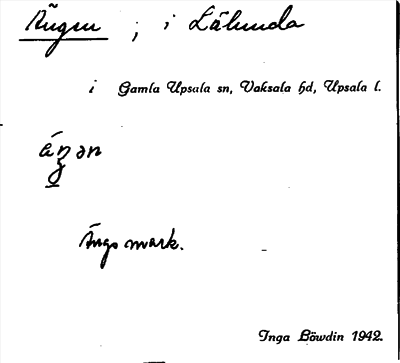 Ängen ; i Lälunda
i Gamla Upsala sn, Vaksala hd, Upsala l.
Ängsmark.
Inga Löwdin 1942.